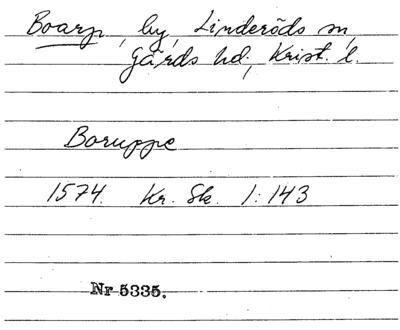 Boarp, by, Linderöds sn,
Gärds hd., Krist. l.
Boruppe
1574. Kr. Sk. 1:143
Nr 5335.